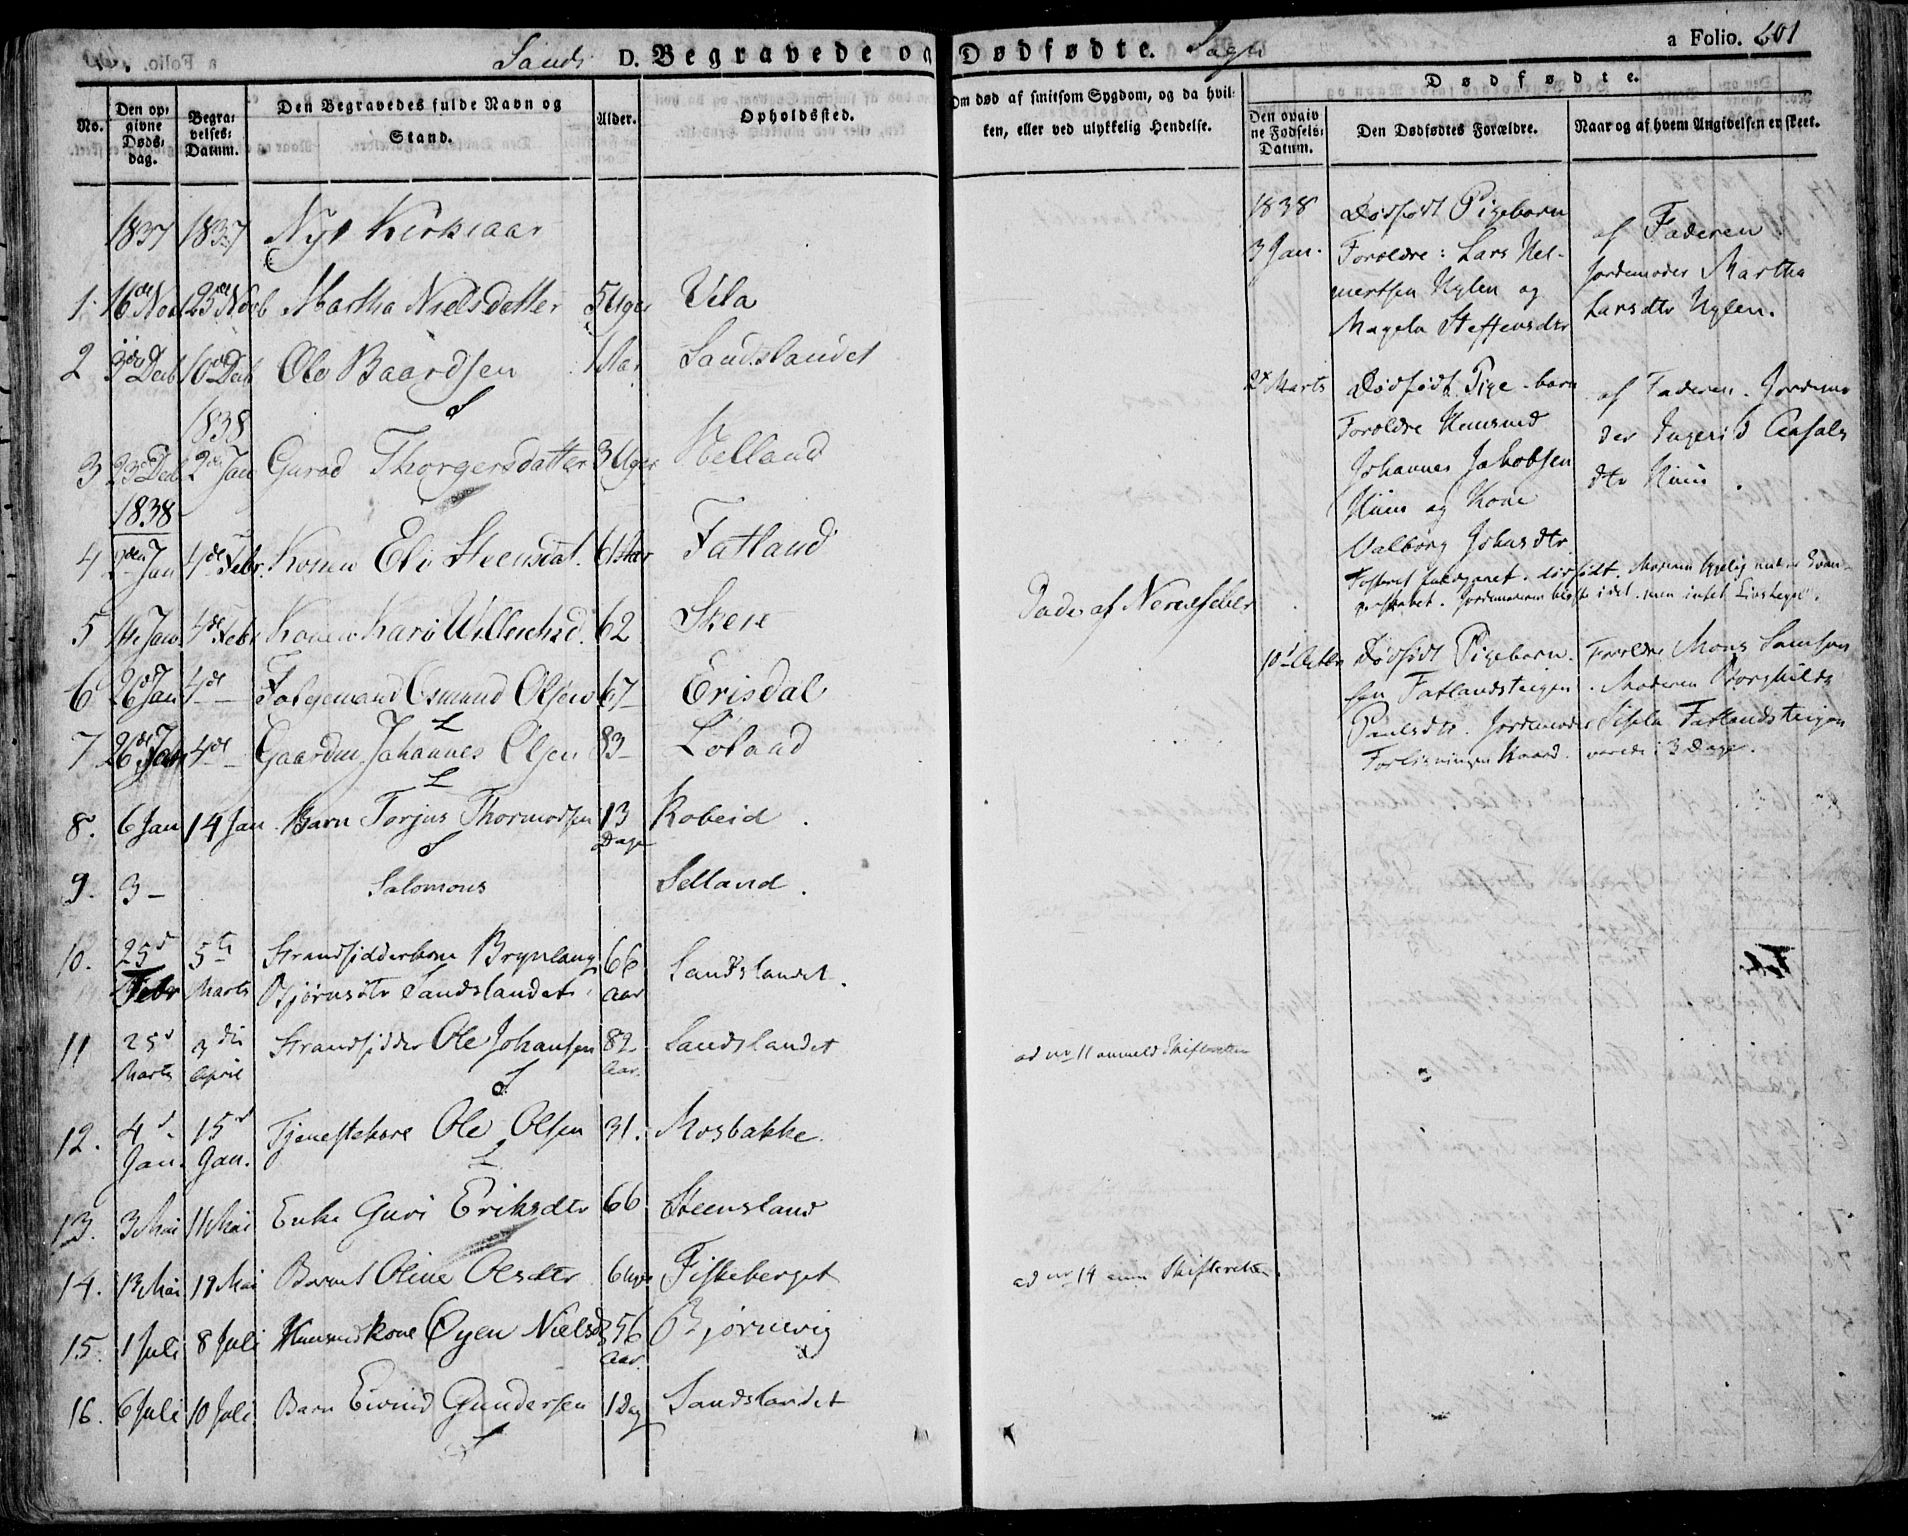 Sands D. Begravede og Dødfødte. Sogn a Folio. 201
No.
Den opgivne Dødsdag.
Begravelses-Datum.
Den Begravedes fulde Navn og Stand.
Alder.
Opholdssted.
Om død af smitsom Sygdom, og da hvilken, eller ved ulykkelig Hendelse.
Dødfødte.
Den opgivne Fødsels-Datum.
Den Dødfødtes Forældre.
Naar og af hvem Angivelsen er skeet.
1837 1837 Nyt Kirkeaar
1. 16de Nov 25de Novb Martha Nielsdatter 5 Uger Vila
2 3de Decb 10de Decb Ole Baardsen 1 Aar Sandslandet
1838
3 23de Decb 2den Jan Guroe Thorgersdatter 3 Uger Helland
1838
4 Jan 4de Febr. Konen Eli Steensdat. 61 Aar Fatland
5 14 Jan 4de Febr Konen Kari 62 Skeie
6 26de Jan 4de — Osmund Olsen 67 Erisdal
7 26de Jan 4de — Gaardm. Johannes Olsen 83 — Løland
8. 6 Jan 14 Jan Barn Torjus Thormodsen 13 Dage Kobeid.
9. 3 — Salomons Selland.
10. 25d Febr 5te Marts Strandsidderkone Brynlaug 66
Bjørnsdtr Sandslandet. Aar Sandslandet.
11 25d Marts 3die April Strandsidder Ole Johansen 82 Aar. Sandslandet
12. 4d Jan. 15d Jan. Tjenestekarl Ole Olsen 31. Mosbakke.
13. 3 Mai 11 Mai Enke Guri Eriksdtr 66 Steensland
14. 13 Mai 19 Mai Barnet Oline Olsdtr 6 Uger Fiskeberget
15. 1 Juli 8 Juli Huusmdkone Nielsd 56 Aar. Bjørnevig
16. 6 Juli 10 Juli Barn Eivind Gundersen 1 Dag Sandslandet
Døde af Nervefeber
ad no 11 anmeld Skifteretten
ad no 14 anm Skifteretten.
1838
3 Jan.
Dødfødt Pigebarn
Forældre: Lars Hel-
mertsen Nylen og
Magela Steffensdtr
af Faderen
Jordemoder Martha
Larsdtr Nylen.
Marts
Dødfødt Pige-barn
Forældre Huusmd
Johannes Jakobsen
Hiim og Kone
Valborg Johnsdtr.
af Faderen. Jordemo
der Ingerid
dtr Hiim.
10d Octbr
Dødfødt Pigebarn. Forældre Mons Samson
sen Fatlandsteigen. Moderen Borghilde
Paulsdtr. Jordemoder Sisela Fatlandsteigen
Forløsningen haard. varede i 3 Dage.